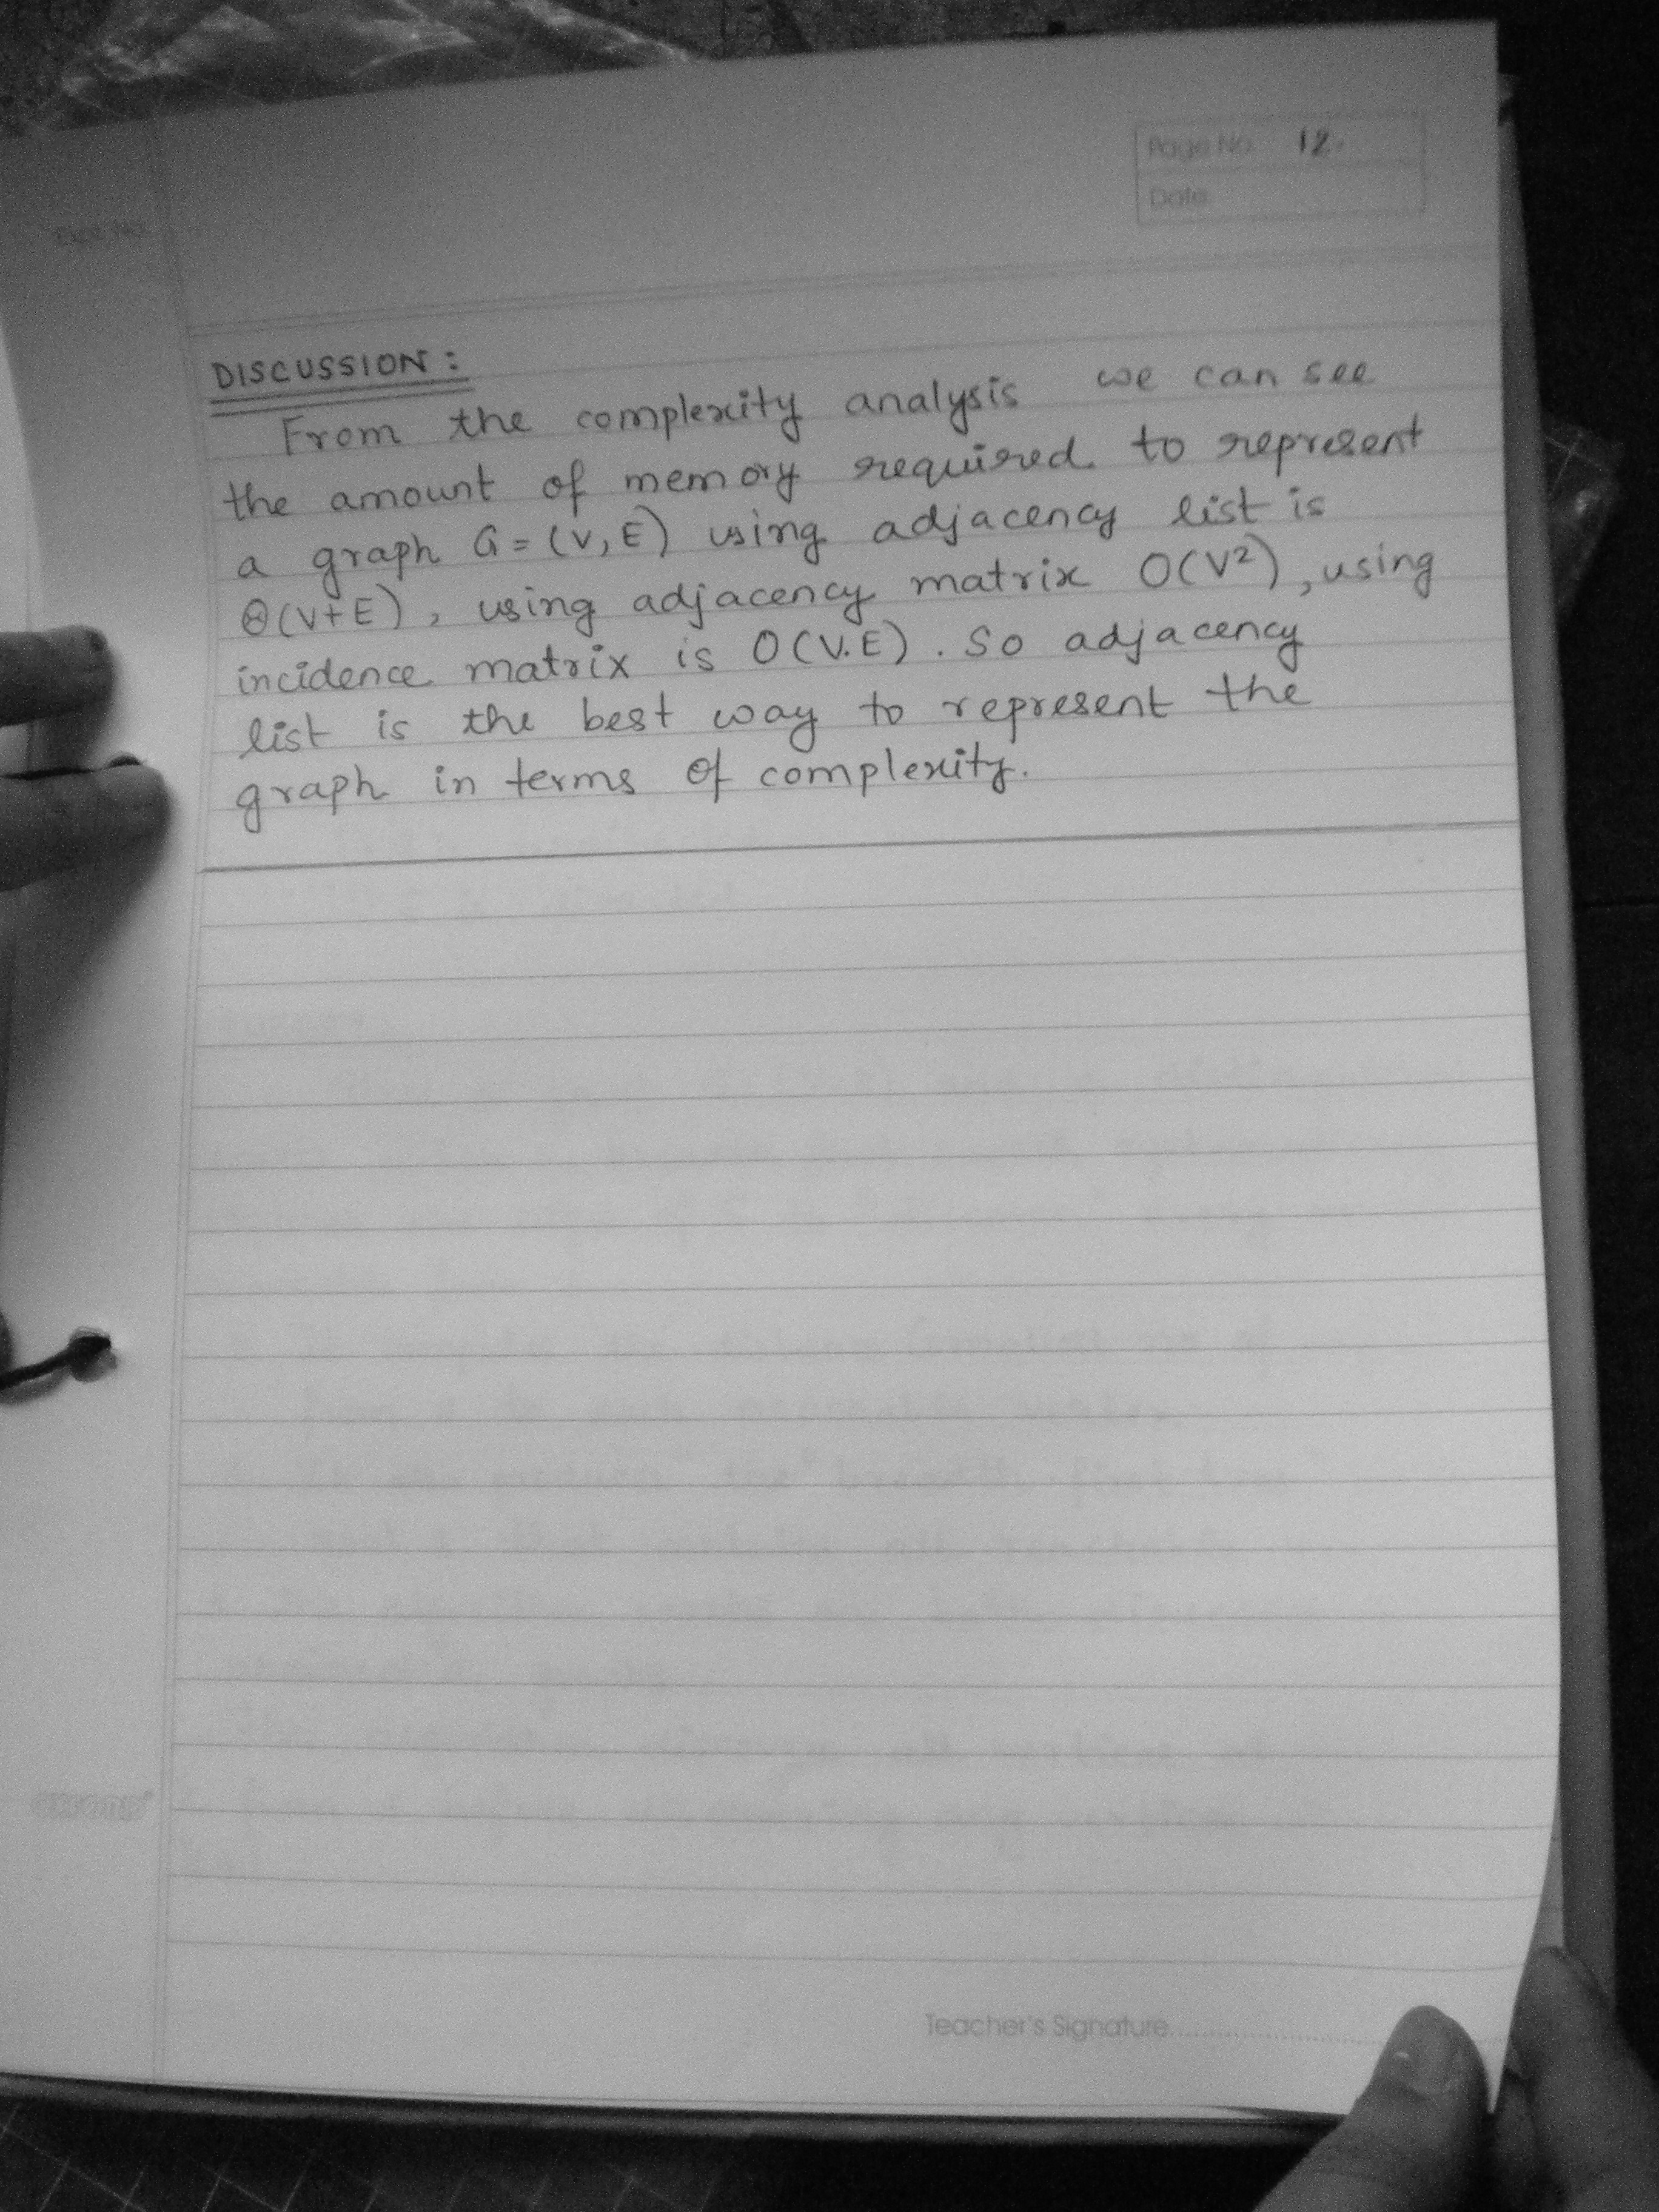 Page No. 12.
Date
Expt. No.
DISCUSSION :
From the complexity analysis we can see
the amount of memory required to represent
a graph G = (V, E) using adjacency list is
Θ(V+E), using adjacency matrix O(V²), using
incidence matrix is O(V.E). So adjacency
list is the best way to represent the
graph in terms of complexity.
Teacher's Signature